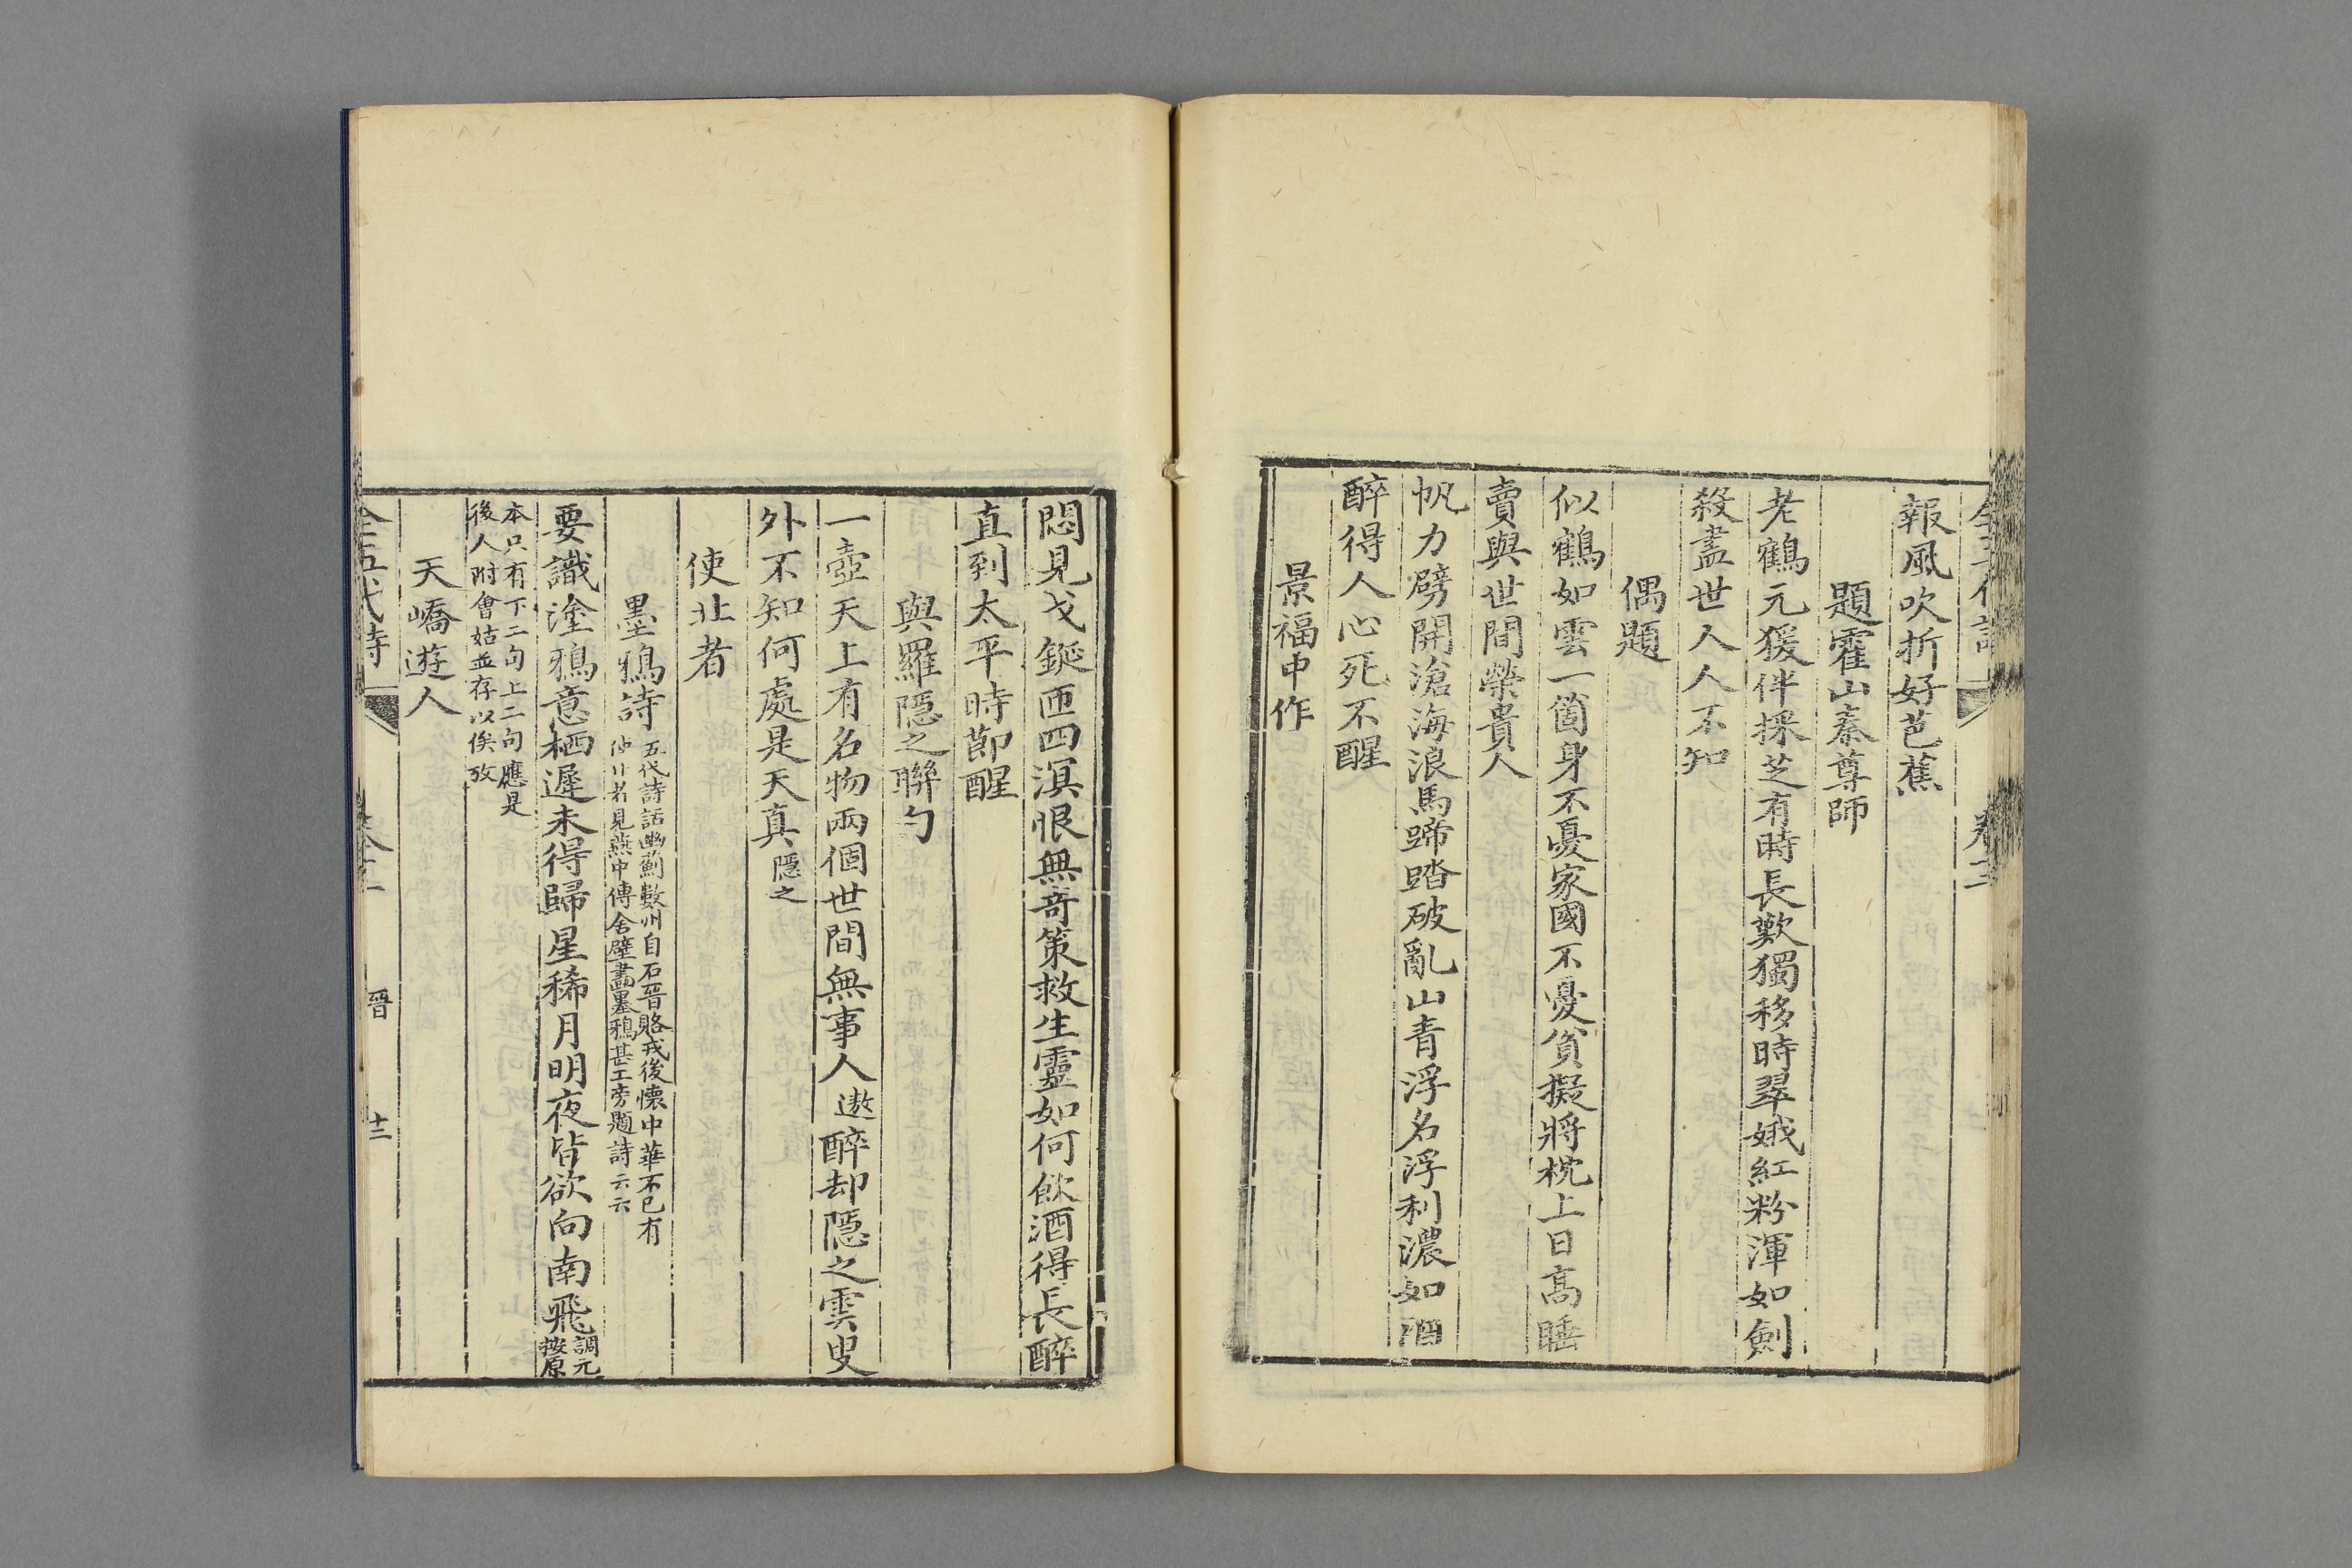 報風吹折好芭蕉
題霍山秦尊師
老鶴元猨伴採芝有時長歎獨移時翠娥紅粉渾如劍
殺盡世人人不知
偶題
似鶴如雲一箇身不憂家國不憂貧擬將枕上日高睡
賣與世間榮貴人
帆力劈開滄海浪馬蹄踏破亂山青浮名浮利濃如酒
醉得人心死不醒
景福中作
悶見戈鋋匝四溟恨無奇策救生靈如何飲酒得長醉
直到太平時節醒
與羅隱之聯句
一壺天上有名物兩個世間無事人遨醉却隱之雲叟
外不知何處是天真隱之
使北者
墨鴉詩
五代詩話幽薊數州自石晉賂戎後懷中華不已有
使北者見燕中傳舍壁畫墨鴉甚工旁題詩云云
要識塗鴉意栖遲未得歸星稀月明夜皆欲向南飛
調元
按原
本只有下二句上二句應是
後人附會姑並存以俟攷
天嶠遊人
全五代詩
晉
十二